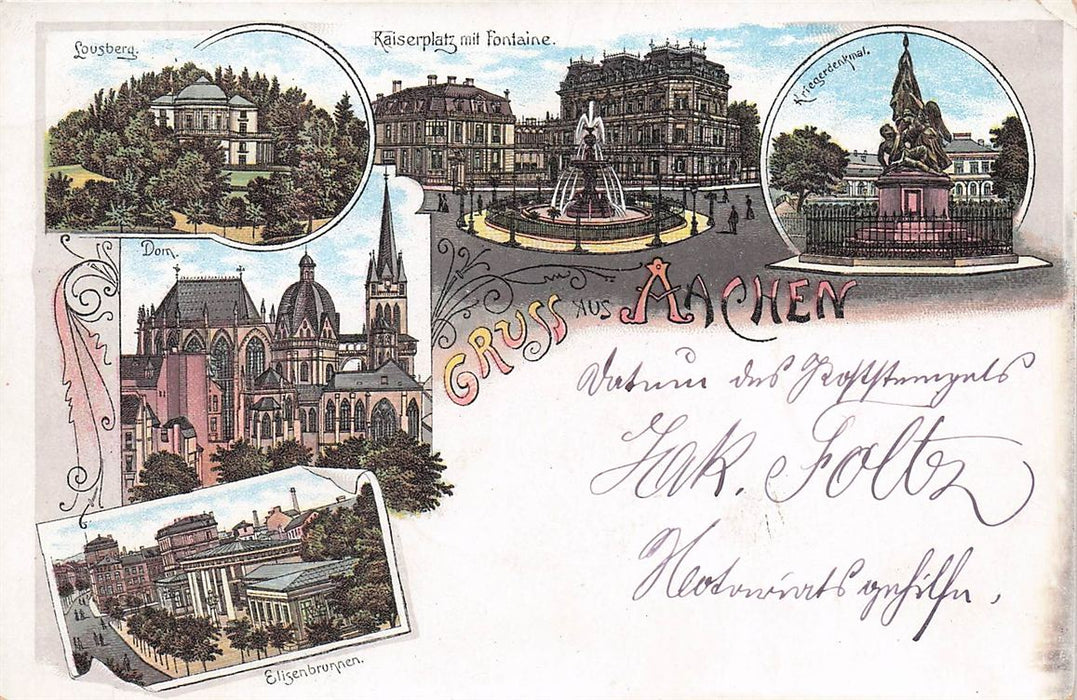 Lousberg.
Kaiserplatz mit Fontaine.
Kriegerdenkmal.
Dom.
GRUSS AUS AACHEN
Datum des Poststempels
Jak. Foltz
Notariatsgehilfe.
Elisenbrunnen.